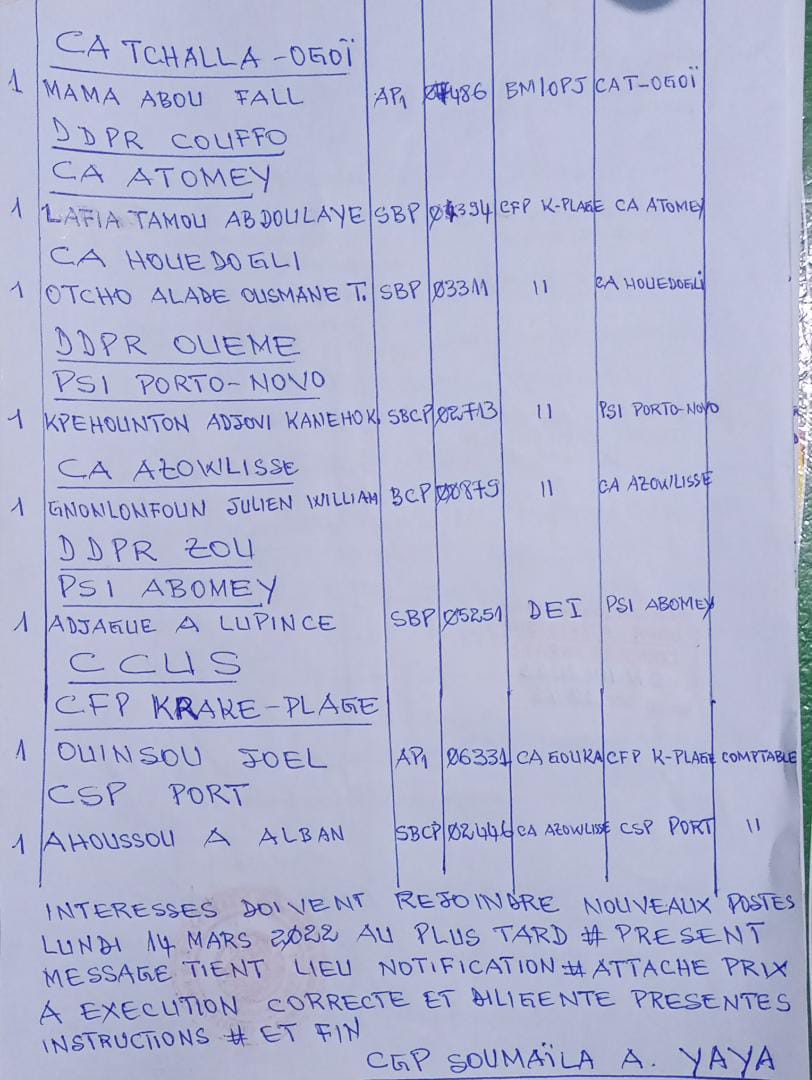 CA TCHALLA-OGOÏ
1 MAMA ABOU FALL AP1 486 BM/OPJ CAT-OGOÏ
DDPR COUFFO
CA ATOMEY
1 LAFIA TAMOU ABDOULAYE SBP 01394 CFP K-PLAGE CA ATOMEY
CA HOUEDOGLI
1 OTCHO ALADE OUSMANE T. SBP 03311 11 CA HOUEDOGLI
DDPR OUEME
PSI PORTO-NOVO
1 KPEHOUNTON ADJOVI KANEHOK. SBCP 02713 11 PSI PORTO-NOVO
CA AZOWLISSE
1 GNONLONFOUN JULIEN WILLIAM BCP 00879 11 CA AZOWLISSE
DDPR ZOU
PSI ABOMEY
1 ADJAGUE A LUPINCE SBP 05251 DEI PSI ABOMEY
CCUS
CFP KRAKE-PLAGE
1 OUINSOU JOEL AP1 06331 CA GOUKA CFP K-PLAGE COMPTABLE
CSP PORT
1 AHOUSSOU A ALBAN SBCP 02446 CA AZOWLISSE CSP PORT 11
INTERESSES DOIVENT REJOINDRE NOUVEAUX POSTES
LUNDI 14 MARS 2022 AU PLUS TARD # PRESENT
MESSAGE TIENT LIEU NOTIFICATION # ATTACHE PRIX
A EXECUTION CORRECTE ET DILIGENTE PRESENTES
INSTRUCTIONS # ET FIN
CGP SOUMAÏLA A. YAYA